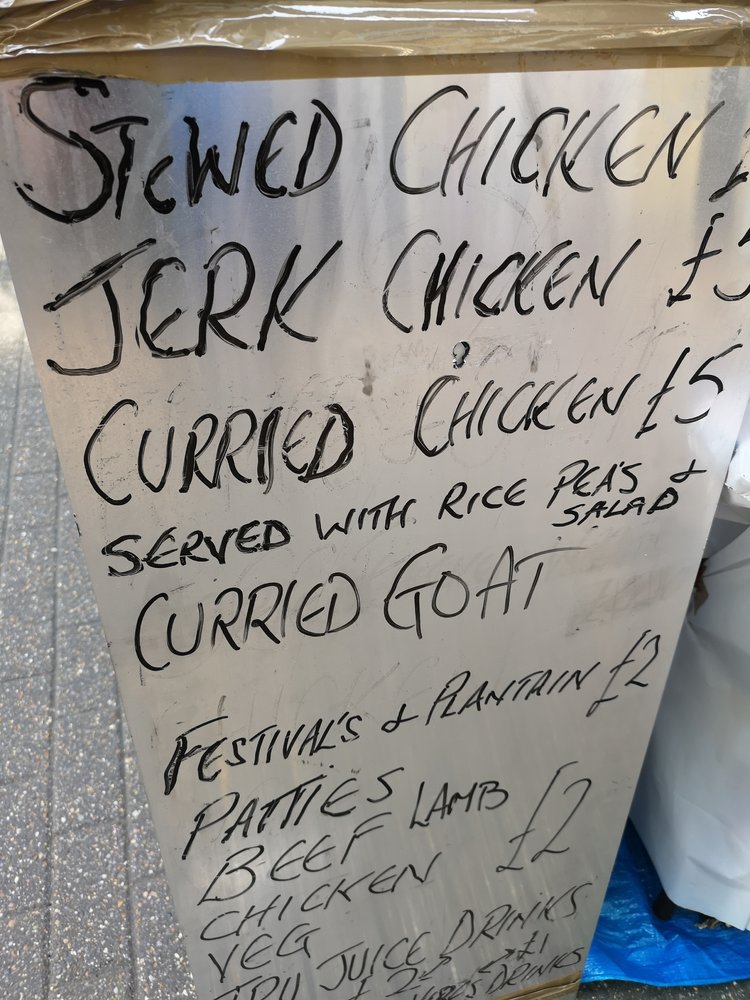 STEWED CHICKEN
JERK CHICKEN £5
CURRIED CHICKEN £5
SERVED WITH RICE PEA'S &
SALAD
CURRIED GOAT
FESTIVAL'S & PLANTAIN £2
PATTIES LAMB
BEEF £2
CHICKEN
VEG
JUICE DRINKS
£1
DRINKS